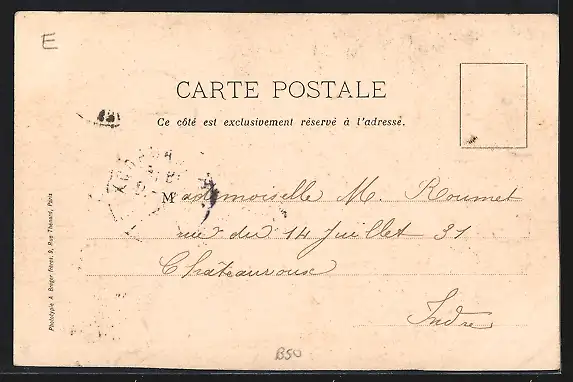 E
CARTE POSTALE
Ce côté est exclusivement réservé à l'adresse.
Mademoiselle M. Roumet
rue du 14 Juillet 31
Châteauroux
Indre
Phototypie A. Breger frères, 9, Rue Thénard, Paris
B50